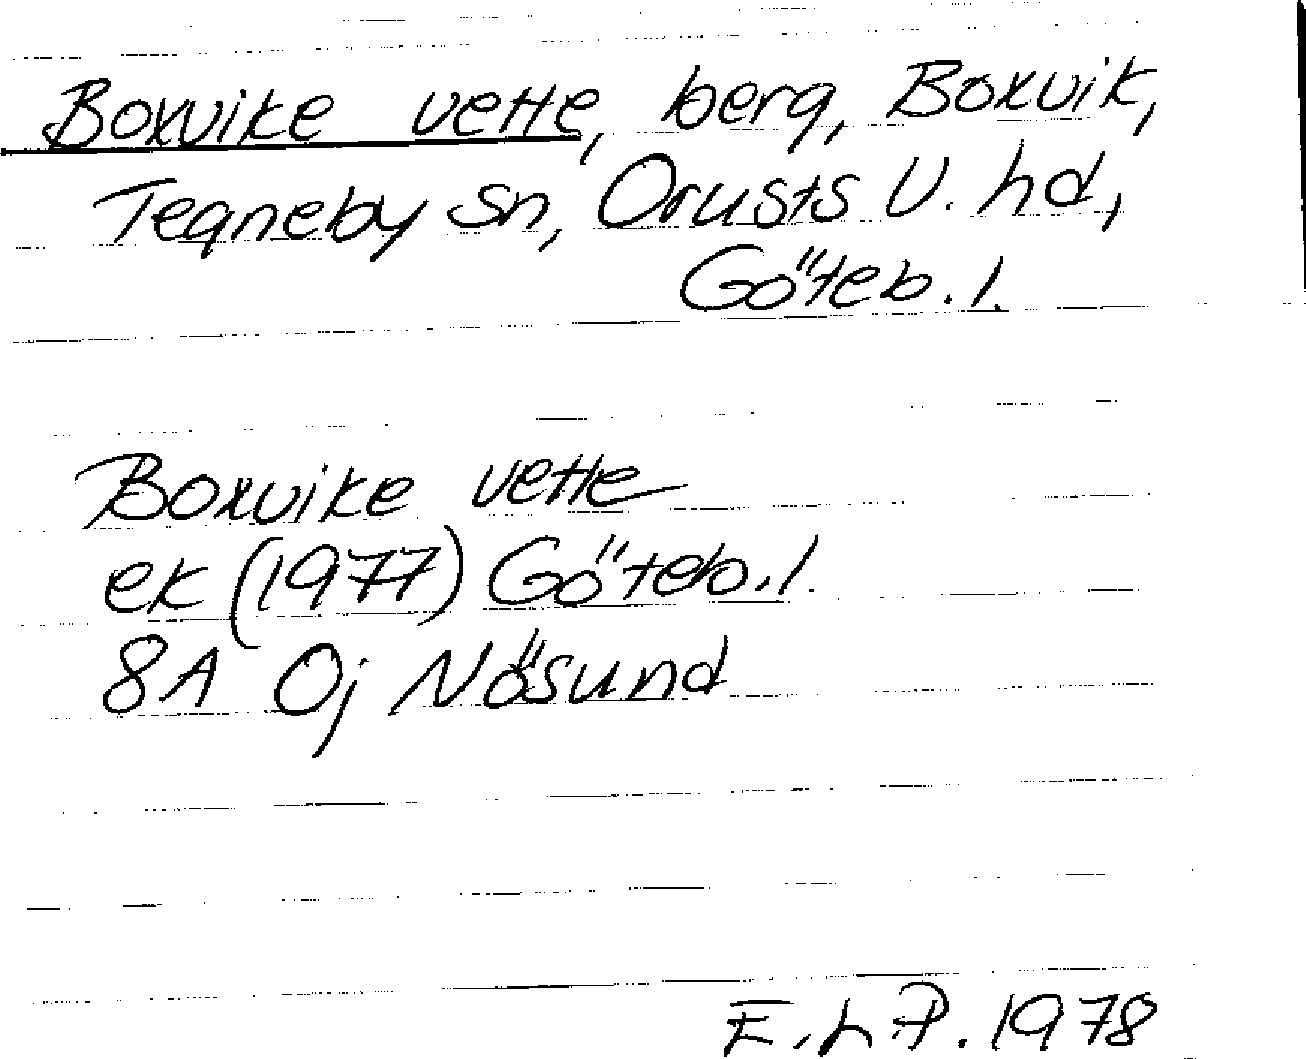 Boxvike vette, berg, Boxvik,
Tegneby sn, Orusts V. hd,
Göteb. l.
Boxvike vette
ek (1977) Göteb. l.
8A 0j Nösund
E. L. P. 1978